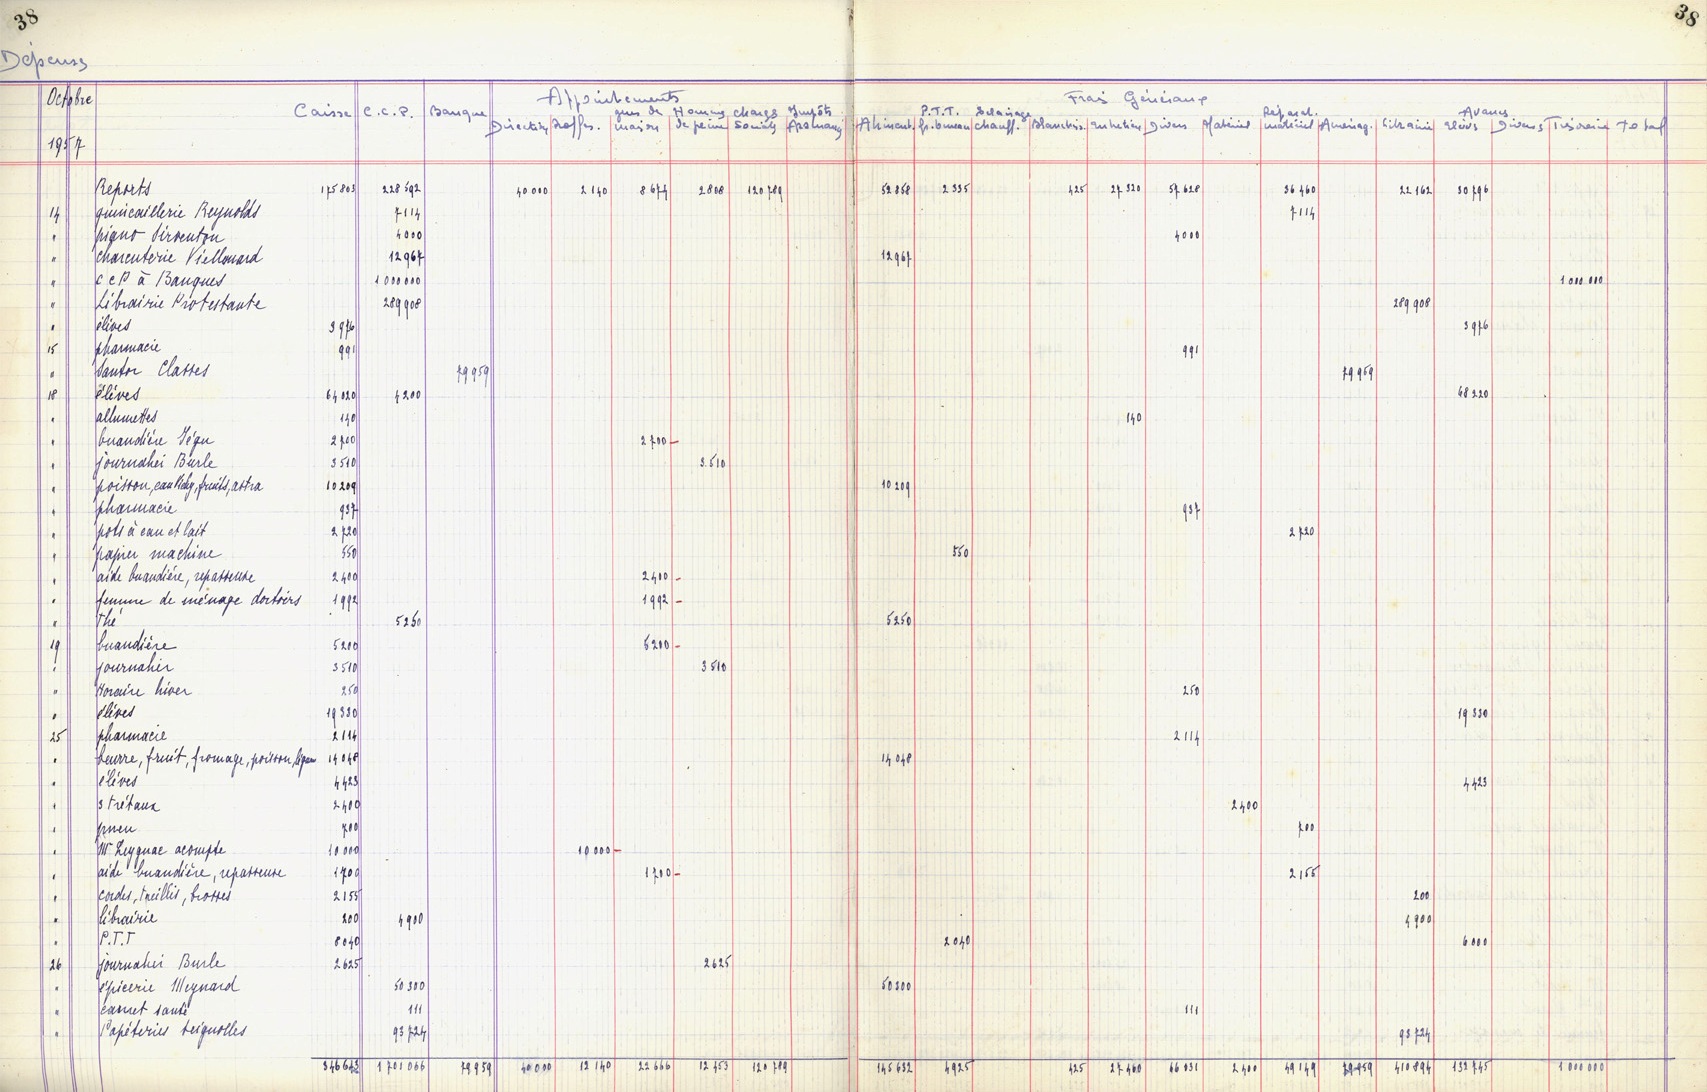 38 38
Dépenses
Octobre 1957
Appointements Frais Généraux
Caisse C.C.P. Banque Direction Proffes. gens de maison Homme de peine charges sociales Impôts Aliment. P.T.T. fr. bureau Eclairage chauff. Blanchis. Entretien Divers Matériel Réparat. matériel Aménag. Librairie Avances élèves Divers Trésorerie Total
Reports 175803 228592 40000 2140 8674 2808 120789 52858 2335 425 27320 57628 36460 22162 30796
14 quincaillerie Reynolds 7114 7114
" 4000 4000
" charcuterie Viellouard 12967 12967
" c c P à Banques 1000000 1000000
" Librairie Protestante 289908 289908
" élèves 3976 3976
15 pharmacie 991 991
" Classes 79959 79959
18 élèves 64020 4200 68220
" allumettes 140 140
" buandière Ségu 2700 2700
" journalier Burle 3510 3510
" poisson, fruits, 10209 10209
" pharmacie 937 937
" pots à eau et lait 2720 2720
" papier machine 550 550
" aide buandière, repasseuse 2400 2400
" femme de ménage dortoirs 1992 1992
" Thé 5250 5250
19 buandière 5200 5200
" journalier 3510 3510
" horaire hiver 250 250
" élèves 19330 19330
25 pharmacie 2114 2114
" beurre, fruit, fromage, poisson, légum 14048 14048
" élèves 4423 4423
" 3 trétaux 2400 2400
" pneu 700 700
" Mr Leygnac acompte 10000 10000
" aide buandière, repasseuse 1700 1700 2155
" cordes, treillis, brosses 2155 200
" librairie 200 4900 4900
" P.T.T 8040 2040 6000
26 journalier Burle 2625 2625
" épicerie Meynard 50300 50300
" carnet santé 111 111
" Papéteries teignolles 93724 93724
346643 1701066 79959 40000 12140 22666 12453 120789 145632 4925 425 27460 66031 2400 49149 79959 410894 132745 1000000